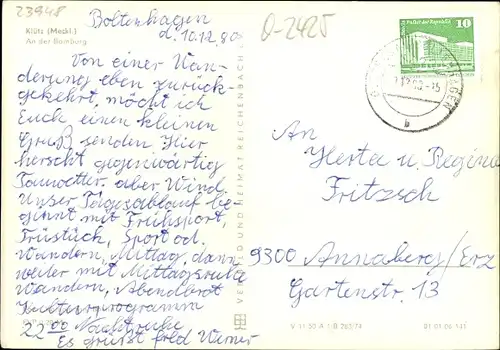 23948
Klütz (Meckl.)
An der Bamburg
Boltenhagen
d. 10.12.80
O-2425
10
Von einer Wan-
derung eben zurück-
gekehrt, möcht ich
Euch einen kleinen
Gruß senden. Hier
herscht gegenwärtig
Tauwetter, aber Wind.
Unser Tagesablauf be-
ginnt mit Frühsport,
Früstück, Sport od.
Wandern, Mittag, dann
weiter mit Mittagsruhe
Wandern, Abendbrot
Kulturprogramm
2200 Nachtruhe
Es grüßt frld Werner
VERLAG BILD UND HEIMAT REICHENBACH
An
Herta u. Regina
Fritzsch
9300 Annaberg/Erz
Gartenstr. 13
V 11 50 A 1 B 263/74
01 01 06 145